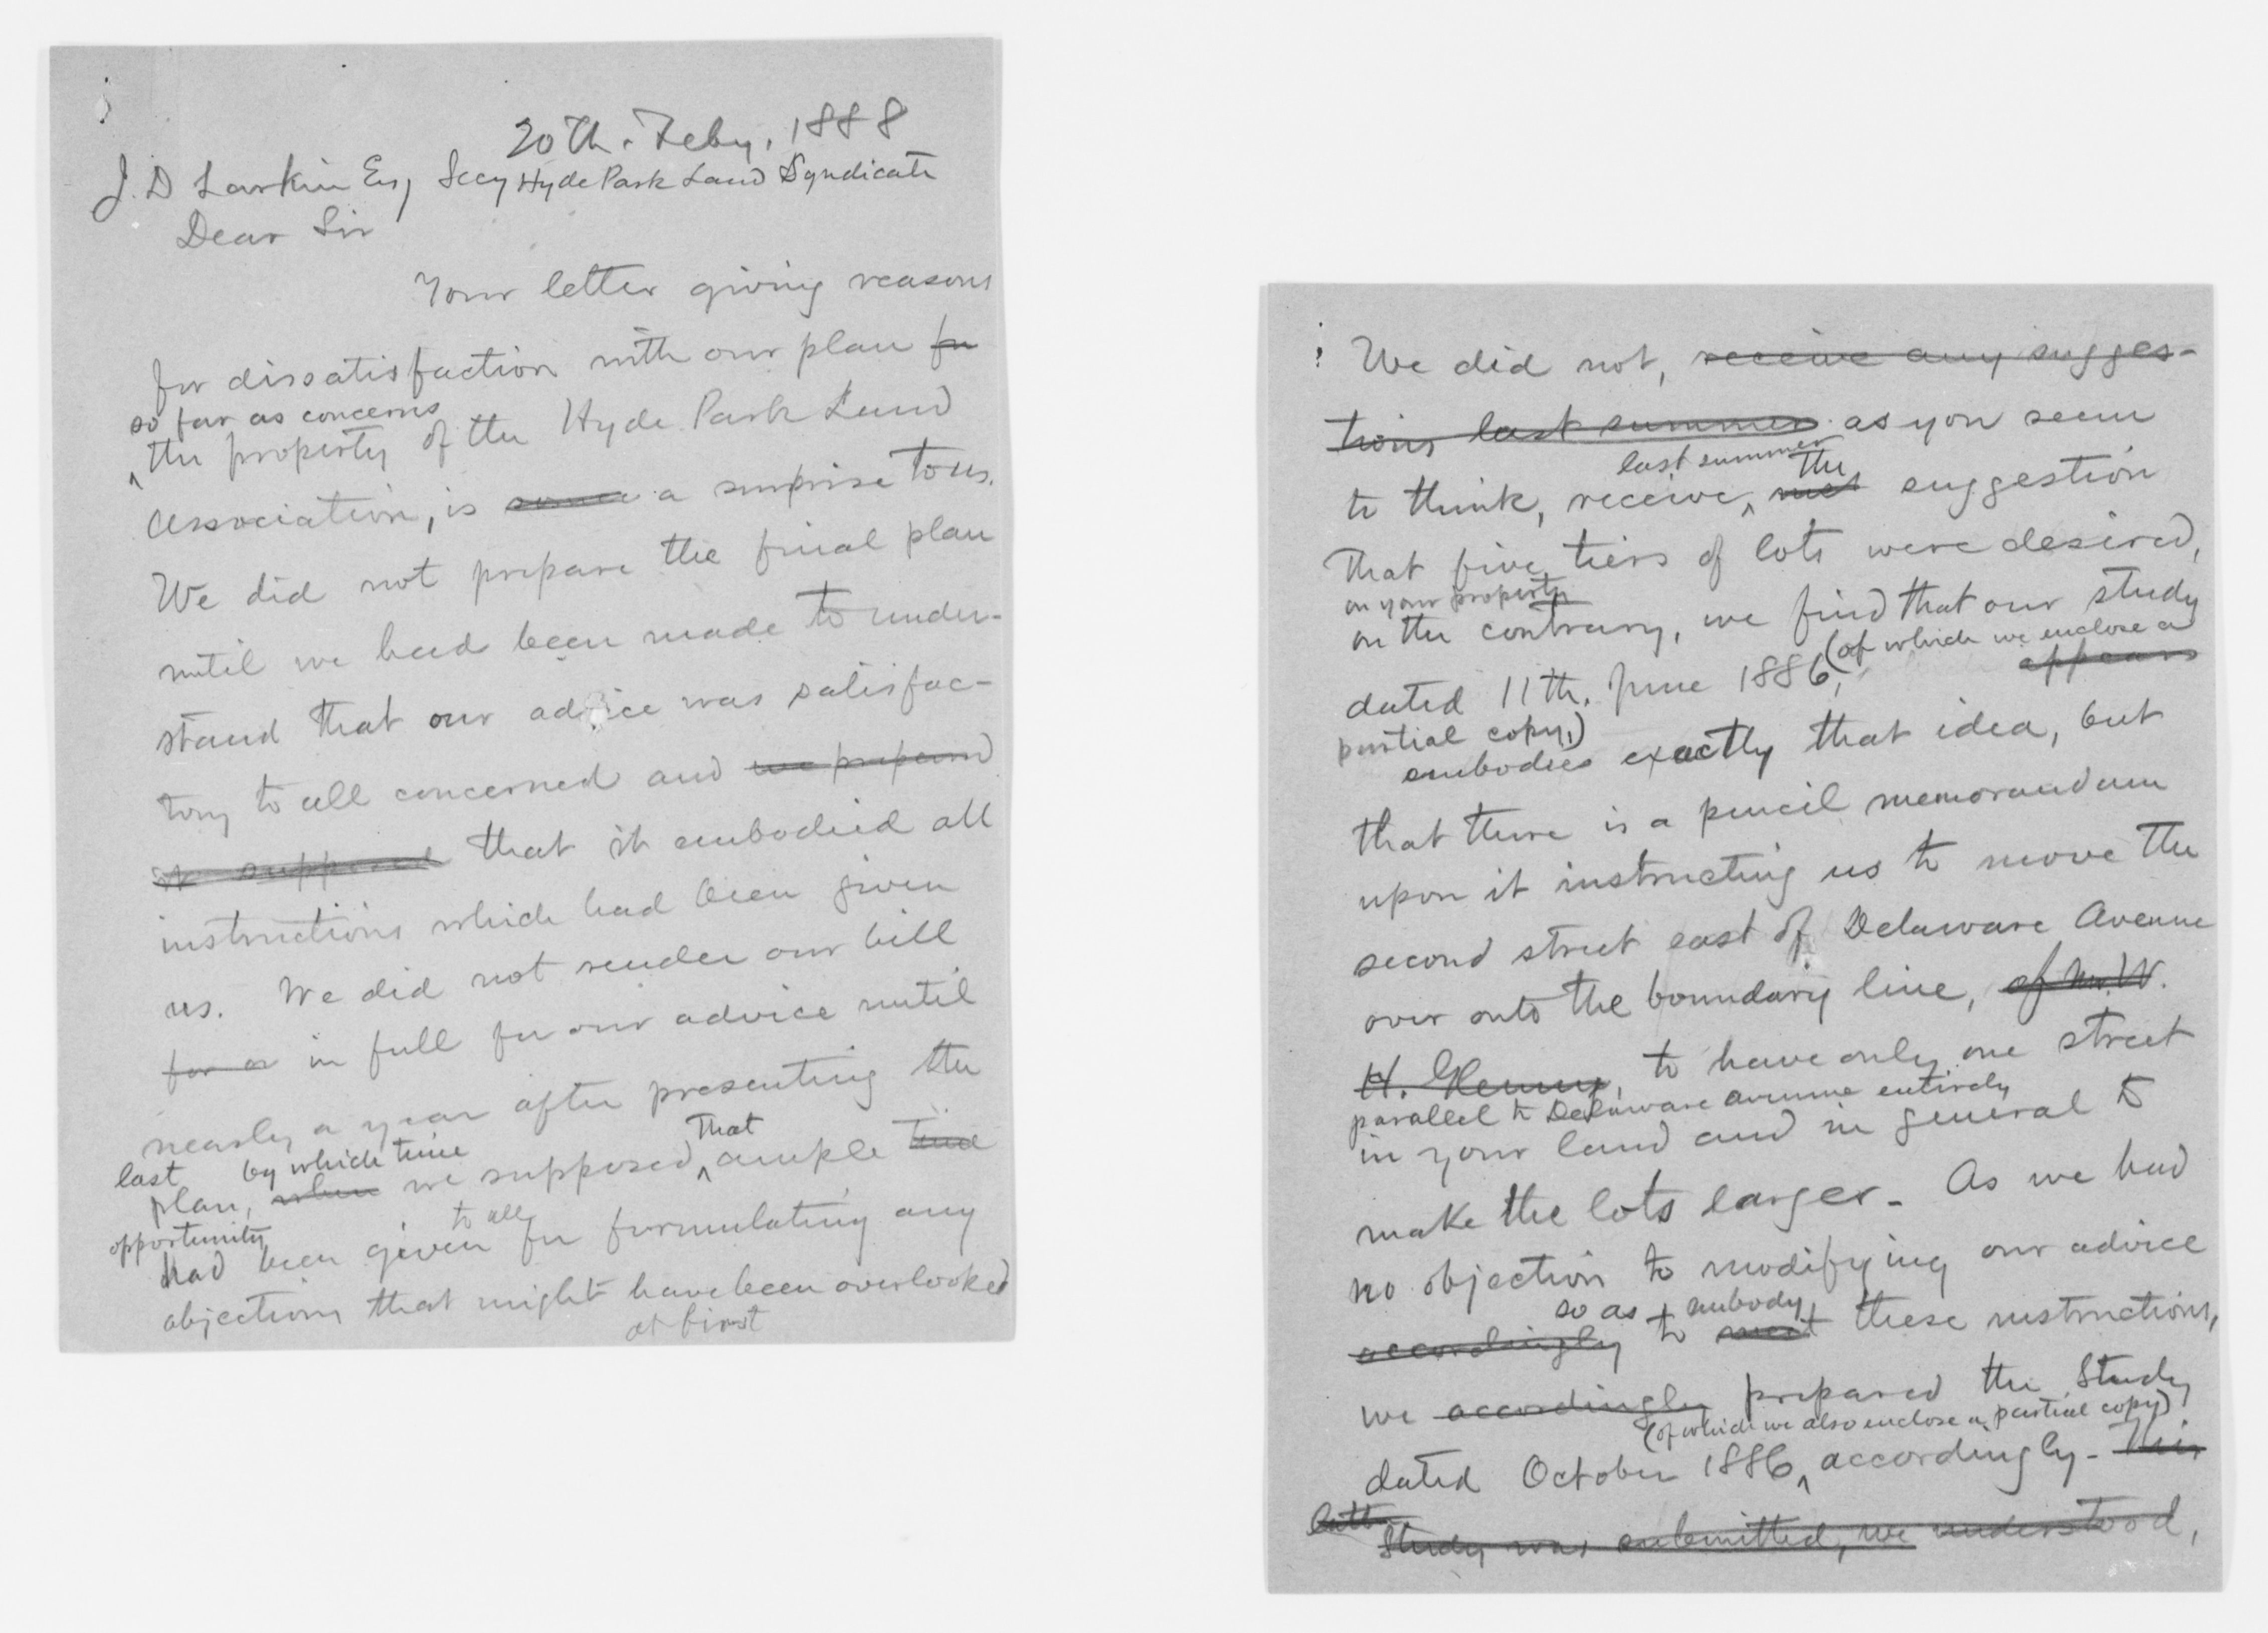 20th. Feby, 1888
J. D Larkin Esq, Secy Hyde Park Land Syndicate
Dear Sir
Your letter giving reasons
for dissatisfaction with our plan for
so far as concerns
the property of the Hyde Park Land
Association, is some a surprise to us.
We did not prepare the final plan
until we had been made to under-
stand that our advice was satisfac-
tory to all concerned and we prepared
it supposed that it embodied all
instructions which had been given
us. We did not render our bill
for a in full for our advice until
nearly a year after presenting the
last by which time that
plan, when we supposed ample time
opportunity to all
had been given for formulating any
objections that might have been overlooked
at first
We did not, receive any sugges-
tions last summer as you seem
last summer the
to think, receive, suggestion
that five tiers of lots were desired,
on your property
on the contrary, we find that our study
(of which we enclose a
dated 11th. June 1886, appears
partial copy,)
embodies exactly that idea, but
that there is a pencil memorandum
upon it instructing us to move the
second street east of Delaware Avenue
over onto the boundary line, of Mr. W.
H. Glenny, to have only one street
parallel to Delaware avenue entirely
in your land and in general to
make the lots larger. As we had
no objection to modifying our advice
so as embody
accordingly to meet these instructions,
we accordingly prepared the Study
(of which we also enclose a partial copy)
dated October 1886, accordingly. This
latter
Study was submitted, we understood,